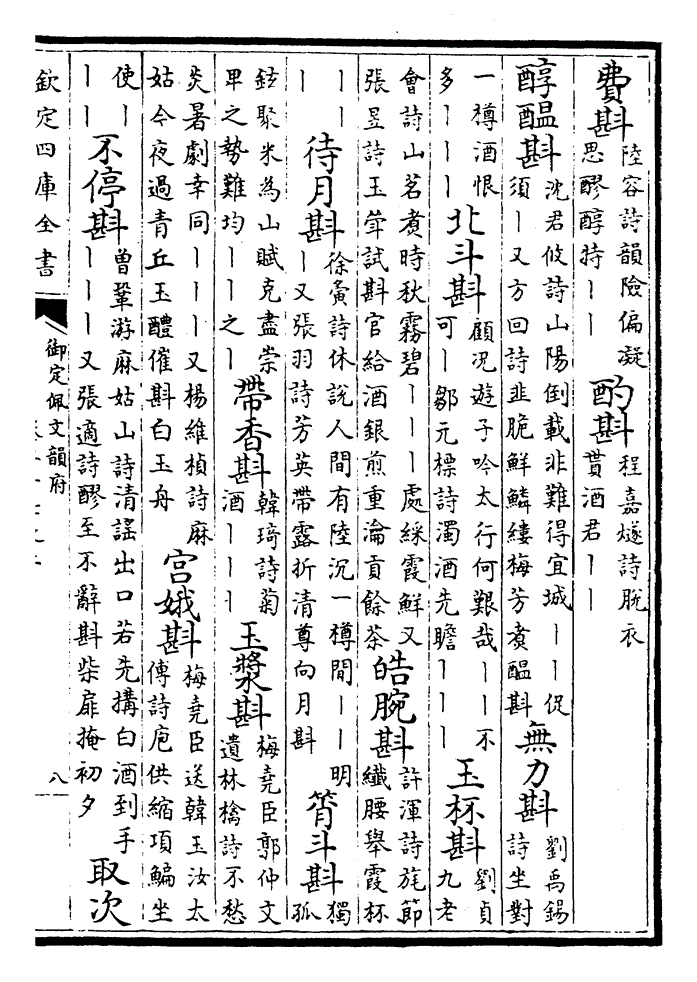 費斟 陸容詩韻險偏凝思醪醇持｜｜ 酌斟 程嘉燧詩脫衣貰酒君｜｜
醇醞斟 沈君攸詩山陽倒載非難得宜城｜｜促須｜又方回詩韭脆鮮鱗縷梅芳煮醞斟 無力斟 劉禹錫詩坐對
一樽酒恨多｜｜｜ 北斗斟 顧況遊子吟太行何艱哉｜｜不可｜鄒元標詩濁酒先瞻｜｜｜ 玉杯斟 劉貞九老
會詩山茗煮時秋霧碧｜｜｜處綵霞鮮又張昱詩玉聳試斟官給酒銀煎重瀹貢餘茶 皓腕斟 許渾詩旄節纖腰舉霞杯
｜｜｜ 待月斟 徐夤詩休說人間有陸沉一樽閒｜｜明｜又張羽詩芳英帶露折清尊向月斟 筲斗斟 獨孤
鉉聚米為山賦克盡崇卑之勢難均｜｜之｜ 帶香斟 韓琦詩菊酒｜｜｜ 玉漿斟 梅堯臣郭仲文遺林檎詩不愁
炎暑劇幸同｜｜｜又楊維楨詩麻姑今夜過青丘玉醴催斟白玉舟 宮娥斟 梅堯臣送韓玉汝太傅詩庖供縮項鯿坐
使｜｜｜ 不停斟 曾鞏游麻姑山詩清謠出口若先搆白酒到手｜｜｜又張適詩醪至不辭斟柴扉掩初夕 取次
欽定四庫全書
御定佩文韻府
八